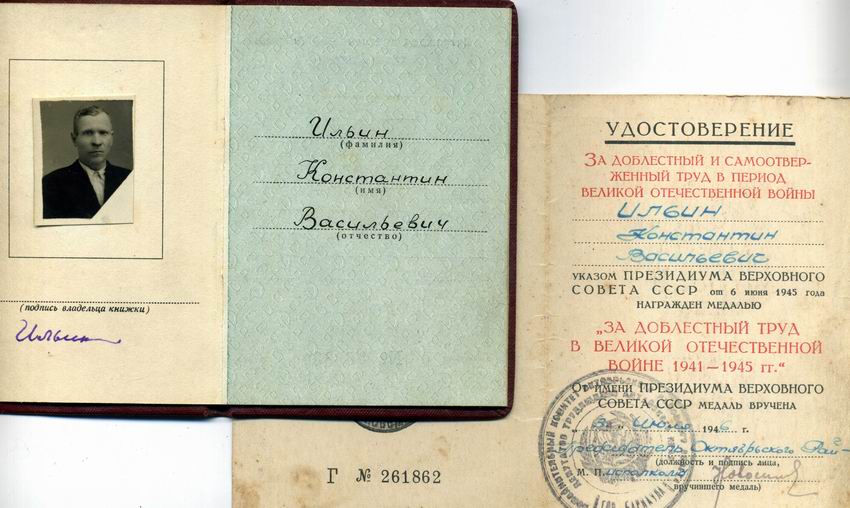 Ильин
(фамилия)
Константин
(имя)
Васильевич
(отчество)
(подпись владельца книжки)
Ильин
УДОСТОВЕРЕНИЕ
ЗА ДОБЛЕСТНЫЙ И САМООТВЕР-
ЖЕННЫЙ ТРУД В ПЕРИОД
ВЕЛИКОЙ ОТЕЧЕСТВЕННОЙ ВОЙНЫ
Ильин
Константин
Васильевич
УКАЗОМ ПРЕЗИДИУМА ВЕРХОВНОГО
СОВЕТА СССР от 6 июня 1945 года
НАГРАЖДЕН МЕДАЛЬЮ
„ЗА ДОБЛЕСТНЫЙ ТРУД
В ВЕЛИКОЙ ОТЕЧЕСТВЕННОЙ
ВОЙНЕ 1941—1945 гг.“
От имени ПРЕЗИДИУМА ВЕРХОВНОГО
СОВЕТА СССР МЕДАЛЬ ВРУЧЕНА
1946 г.
Председатель Октябрьского Рай-
(должность и подпись лица,
М. П. исполкома
вручившего медаль)
Г № 261862